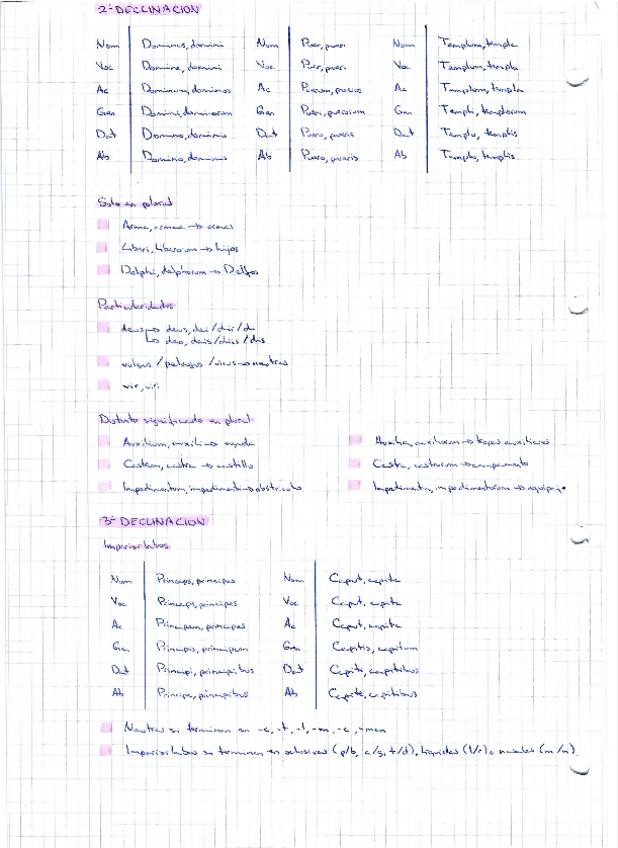 2ª DECLINACION
Nom Dominus, domini Nom Puer, pueri Nom Templum, templa
Voc Domine, domini Voc Puer, pueri Voc Templum, templa
Ac Dominum, dominos Ac Puerum, pueros Ac Templum, templa
Gen Domini, dominorum Gen Pueri, puerorum Gen Templi, templorum
Dat Domino, dominis Dat Puero, pueris Dat Templo, templis
Ab Domino, dominis Ab Puero, pueris Ab Templo, templis
Solo en plural
Arma, → armas
Liberi, liberorum → hijos
Delphi, delphorum → Delfos
Particularidades
deus → deus, dei/dii/di
↳ deo, deis/diis/dis
vulgus / pelagus / virus → neutros
vir, viri
Distinto significado en plural
Auxilium, auxilii → ayuda Auxilia, auxiliorum → tropas auxiliares
Castrum, castri → castillo Castra, castrorum → campamento
Impedimentum, impedimenti → obstáculo Impedimenta, impedimentorum → equipaje
3ª DECLINACION
Imparisílabos
Nom Princeps, principes Nom Caput, capita
Voc Princeps, principes Voc Caput, capita
Ac Principem, principes Ac Caput, capita
Gen Principis, principum Gen Capitis, capitum
Dat Principi, principibus Dat Capiti, capitibus
Ab Principe, principibus Ab Capite, capitibus
Neutros si terminan en -c, -t, -l, -ma, -e, -men
Imparisílabos si terminan en oclusivas (p/b, c/g, t/d), líquidas (l/r) o nasales (m/n)